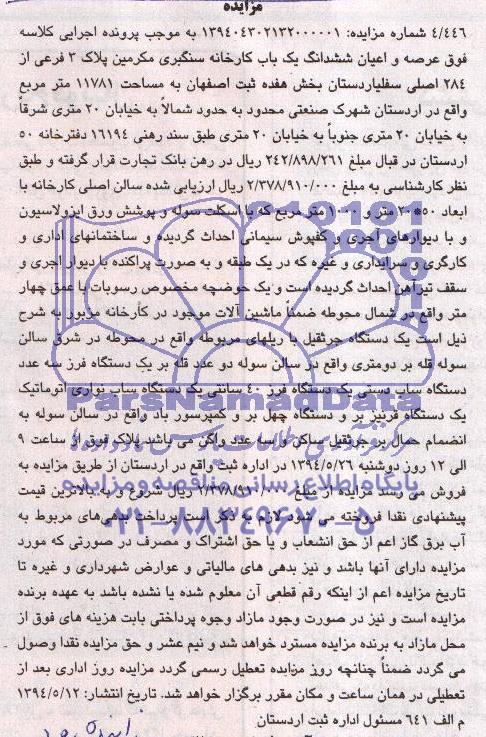 مزایده
۴/۴۴۶ شماره مزایده: ۱۳۹۴۰۴۳۰۲۱۳۲۰۰۰۰۰۱ به موجب پرونده اجرایی کلاسه
فوق عرصه و اعیان ششدانگ یک باب کارخانه سنگبری مکرمین پلاک ۳ فرعی از
۲۸۴ اصلی سفلیاردستان بخش هفده ثبت اصفهان به مساحت ۱۱۷۸۱ متر مربع
واقع در اردستان شهرک صنعتی محدود به حدود شمالاً به خیابان ۲۰ متری شرقاً
به خیابان ۲۰ متری جنوباً به خیابان ۲۰ متری طبق سند رهنی ۱۶۱۹۴ دفترخانه ۵۰
اردستان در قبال مبلغ ۲۴۲/۸۹۸/۲۶۱ ریال در رهن بانک تجارت قرار گرفته و طبق
نظر کارشناسی به مبلغ ۲/۳۷۸/۹۱۰/۰۰۰ ریال ارزیابی شده سالن اصلی کارخانه با
ابعاد ۵۰*۲۰ متر و ۱۰۰۰ متر مربع که با اسکلت سوله و پوشش ورق ایزولاسیون
و با دیوارهای آجری و کفپوش سیمانی احداث گردیده و ساختمانهای اداری و
کارگری و سرایداری و غیره که در یک طبقه و به صورت پراکنده با دیوار آجری و
سقف تیرآهن احداث گردیده است و یک حوضچه مخصوص رسوبات با عمق چهار
متر واقع در شمال محوطه ضمناً ماشین آلات موجود در کارخانه مزبور به شرح
ذیل است یک دستگاه جرثقیل با ریلهای مربوطه واقع در محوطه در شرق سالن
سوله قله بر دومتری واقع در سالن سوله دو عدد قله بر یک دستگاه فرز سه عدد
دستگاه ساب دستی یک دستگاه فرز ۴۰ سانتی یک دستگاه ساب نواری اتوماتیک
یک دستگاه قرنیز بر و دستگاه چهل بر و کمپرسور باد واقع در سالن سوله به
انضمام حمال بر جرثقیل ساکن و سه عدد واگن می باشد پلاک فوق از ساعت ۹
الی ۱۲ روز دوشنبه ۱۳۹۴/۵/۲۶ در اداره ثبت واقع در اردستان از طریق مزایده به
فروش می رسد مزایده از مبلغ ۲/۳۷۸/۹۱۰/۰۰۰ ریال شروع و به بالاترین قیمت
پیشنهادی نقدا فروخته می شود لازم به ذکر است پرداخت بدهی های مربوط به
آب برق گاز اعم از حق انشعاب و یا حق اشتراک و مصرف در صورتی که مورد
مزایده دارای آنها باشد و نیز بدهی های مالیاتی و عوارض شهرداری و غیره تا
تاریخ مزایده اعم از اینکه رقم قطعی آن معلوم شده یا نشده باشد به عهده برنده
مزایده است و نیز در صورت وجود مازاد وجوه پرداختی بابت هزینه های فوق از
محل مازاد به برنده مزایده مسترد خواهد شد و نیم عشر و حق مزایده نقدا وصول
می گردد ضمناً چنانچه روز مزایده تعطیل رسمی گردد مزایده روز اداری بعد از
تعطیلی در همان ساعت و مکان مقرر برگزار خواهد شد. تاریخ انتشار: ۱۳۹۴/۵/۱۲
م الف ۶۴۱ مسئول اداره ثبت اردستان
ParsNamadData
پایگاه اطلاع رسانی مناقصه و مزایده
۰۲۱-۸۸۳۴۹۶۷۰-۵